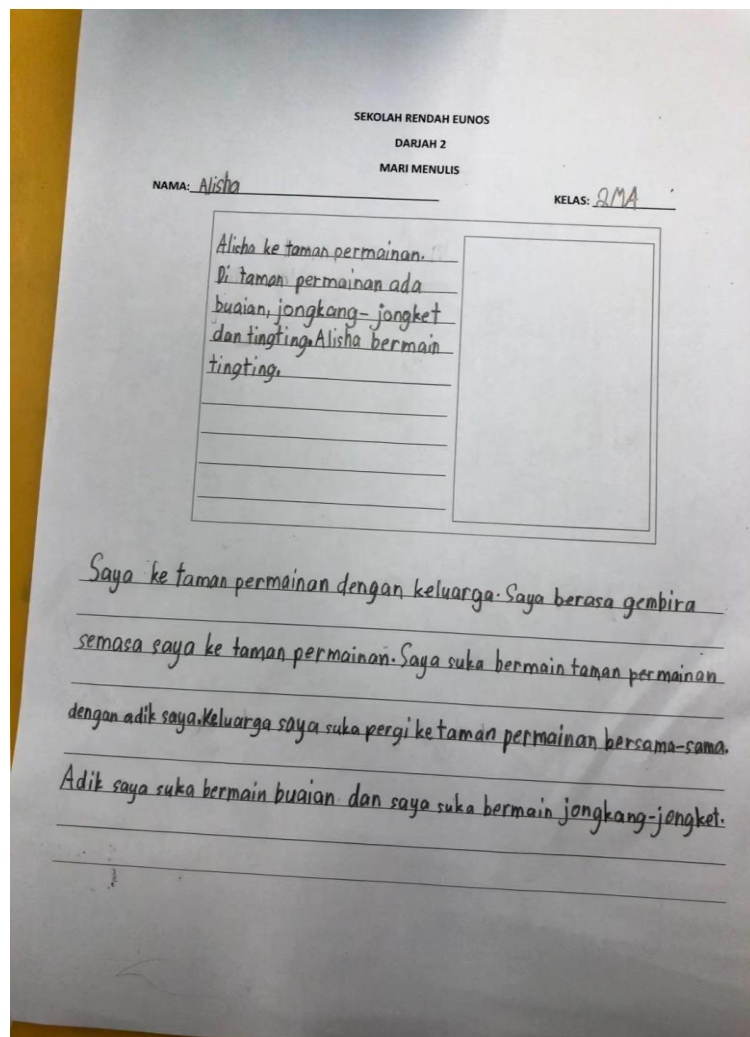 SEKOLAH RENDAH EUNOS
DARJAH 2
MARI MENULIS
NAMA: Alisha
KELAS: 2MA
Alisha ke taman permainan.
Di taman permainan ada
buaian, jongkang-jongket
dan tingting. Alisha bermain
tingting.
Saya ke taman permainan dengan keluarga. Saya berasa gembira
semasa saya ke taman permainan. Saya suka bermain taman permainan
dengan adik saya. Keluarga saya suka pergi ke taman permainan bersama-sama.
Adik saya suka bermain buaian dan saya suka bermain jongkang-jongket.